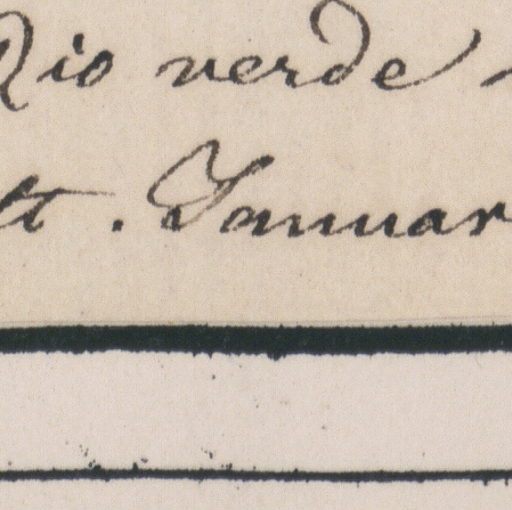 Rio verde
lt. Januar